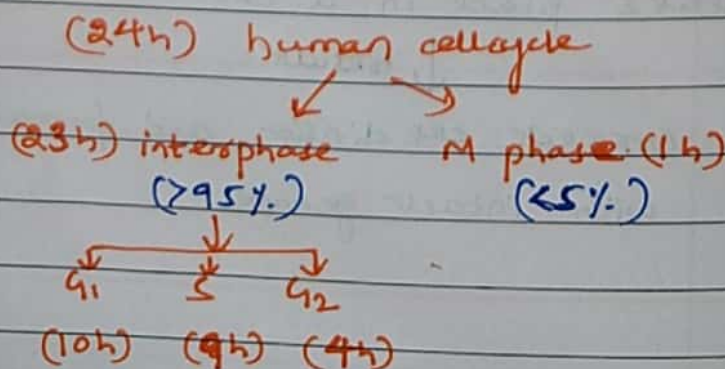 (24h) human cell cycle
(23h) interphase M phase (1h)
(>95%.) (<5%.)
G1 S G2
(10h) (9h) (4h)